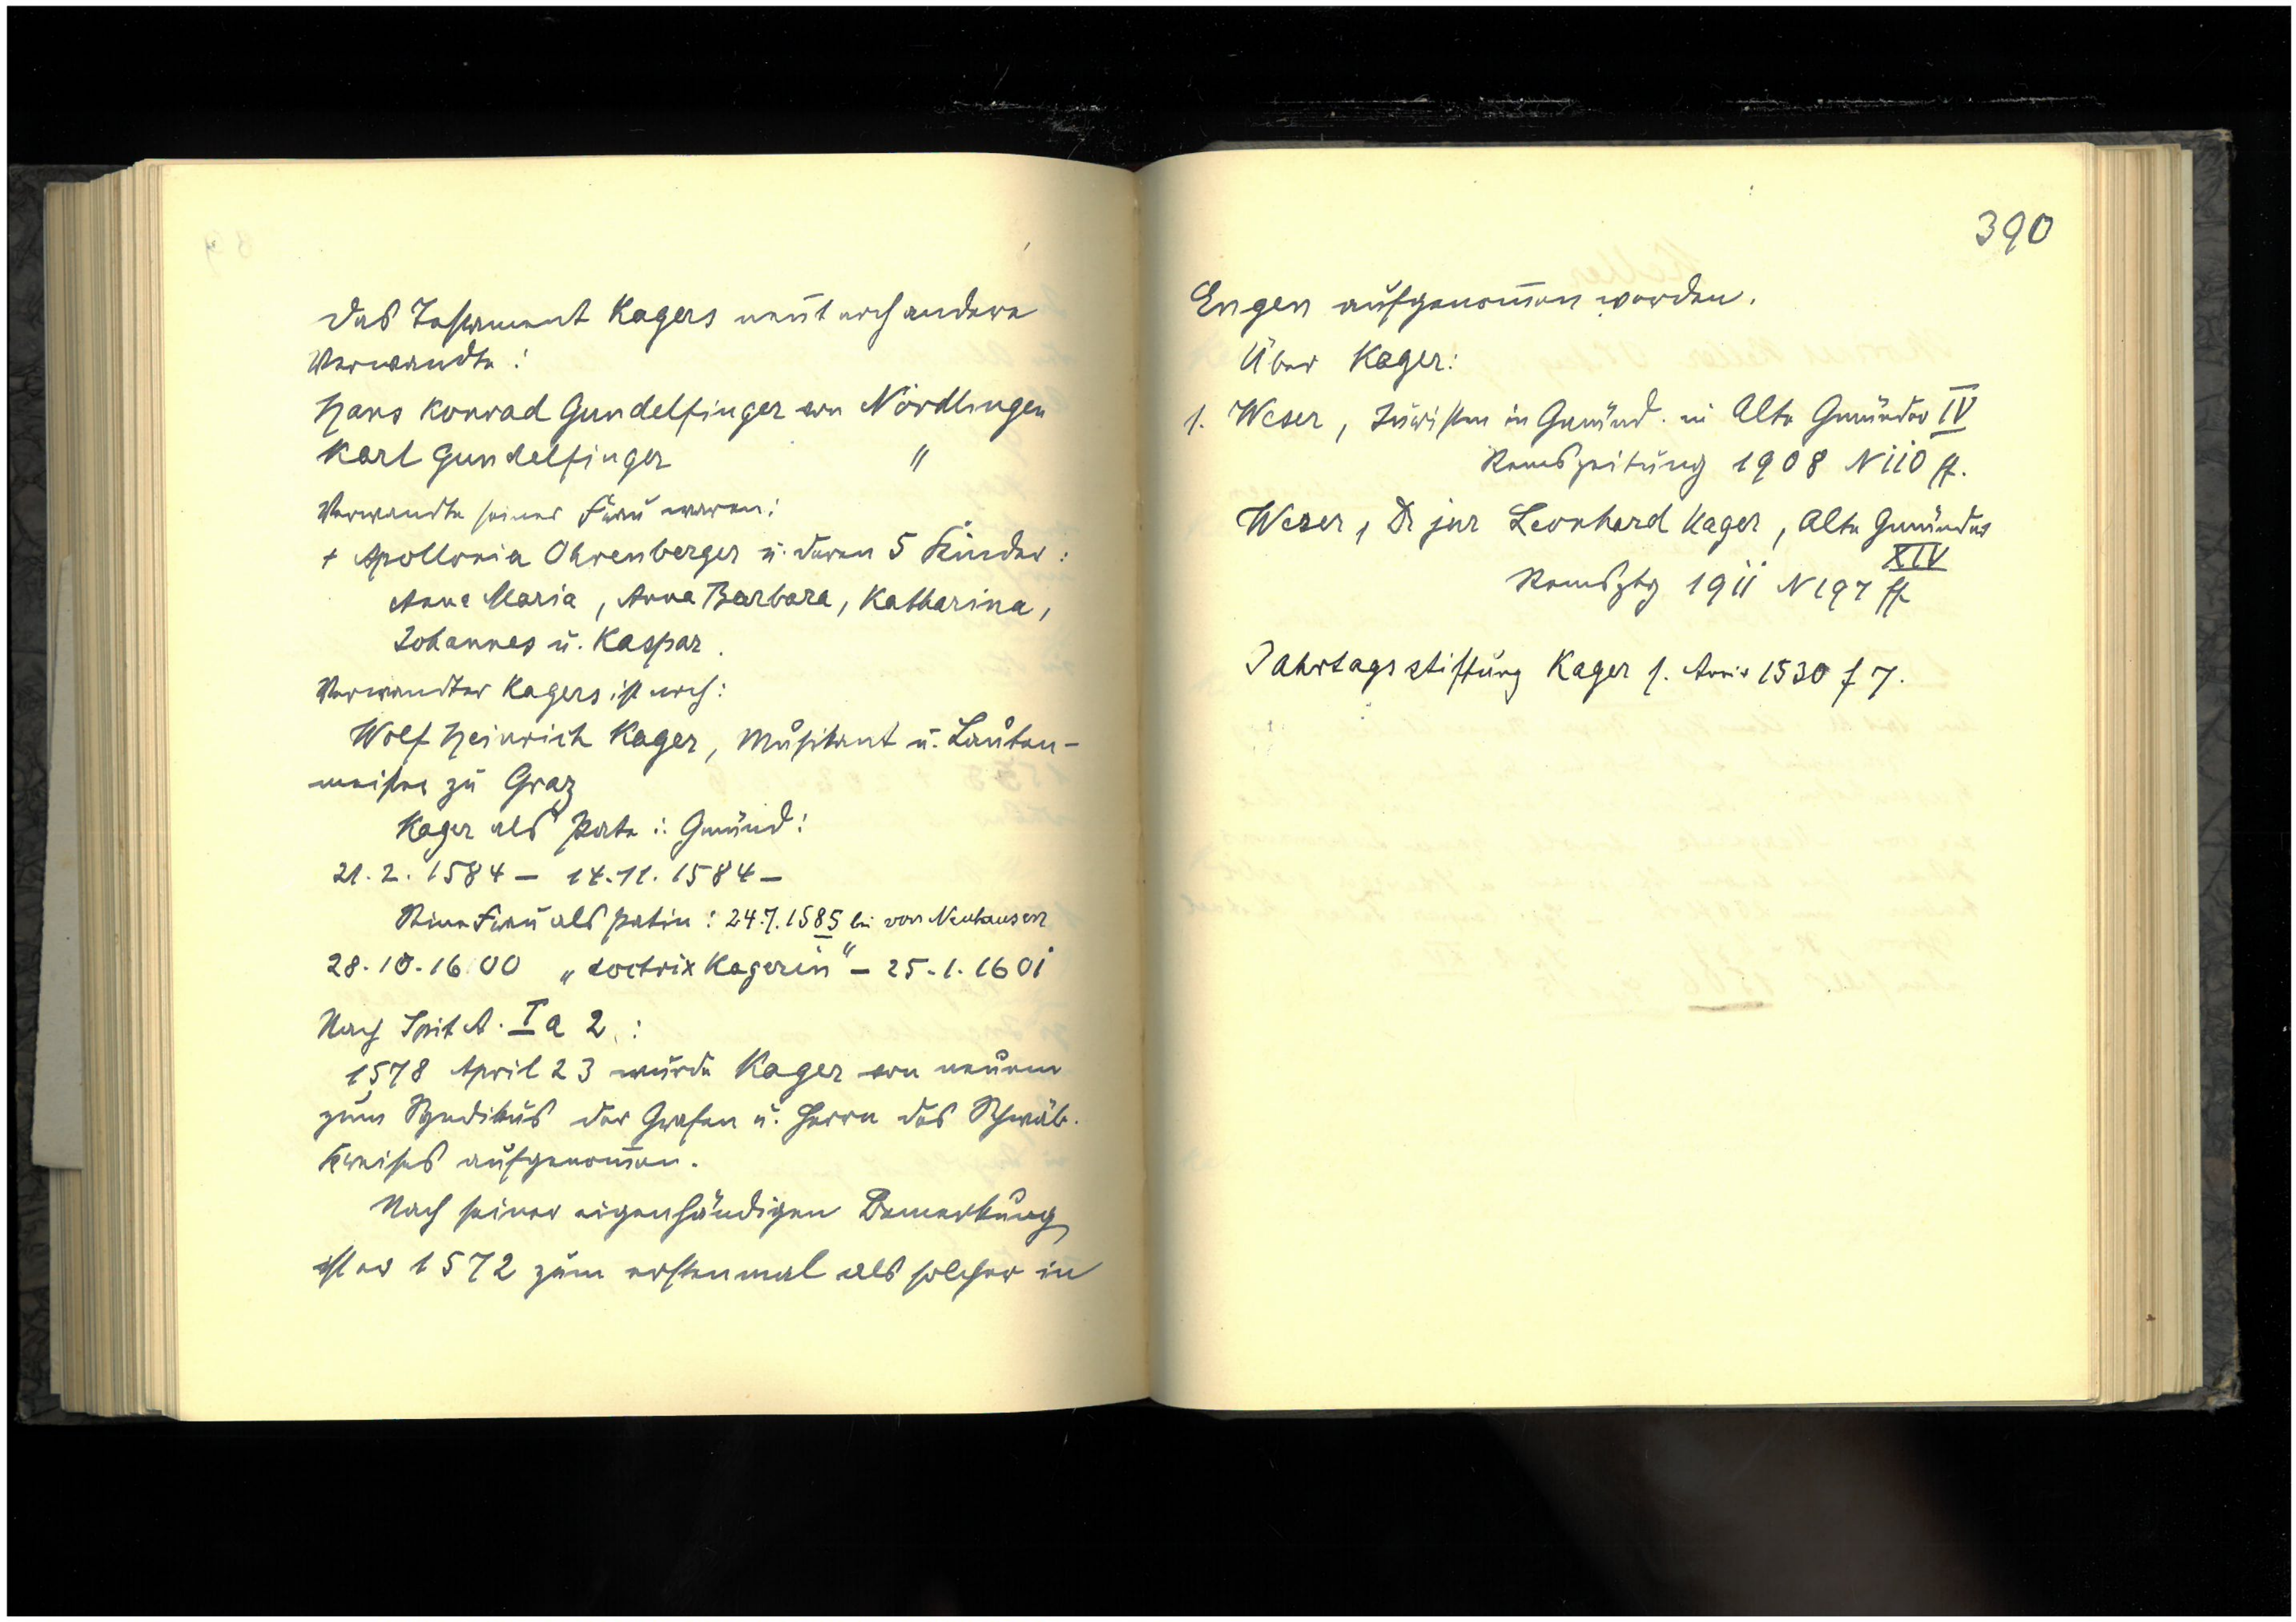 Das Testament Kagers nennt noch andere
Verwandte:
Hans Konrad Gundelfinger von Nördlingen
Karl Gundelfinger "
Verwandte seiner Frau waren:
+ Apollonia Ohrenberger u. deren 5 Kinder:
Anna Maria, Anna Barbara, Katharina,
Johannes u. Kaspar.
Verwandter Kagers ist noch:
Wolf Heinrich Kager, Musikant u. Lauten-
meister zu Graz
Kager als Pate i. Gmünd:
21.2.1584 – 14.11.1584 –
Seine Frau als Patin: 24.7.1585 bei von Neuhausen
28.10.1600 „doctrix Kagerin" – 25.1.1601
Nach Spit A. I a 2:
1578 April 23 wurde Kager von neuem
zum Syndikus der Grafen u. Herrn des Schwäb.
Kreises aufgenommen.
Nach seiner eigenhändigen Bemerkung
ist er 1572 zum erstenmal als solcher in
390
Engen aufgenommen worden.
Über Kager:
1. Weser, Juristen in Gmünd. in Alte Gmünder IV
Remszeitung 1908 N 110 ff.
Weser, Dr jur Leonhard Kager, Alte Gmünder
XIV
Remsztg 1911 N 197 ff
Jahrtagsstiftung Kager s. 1530 f 7.